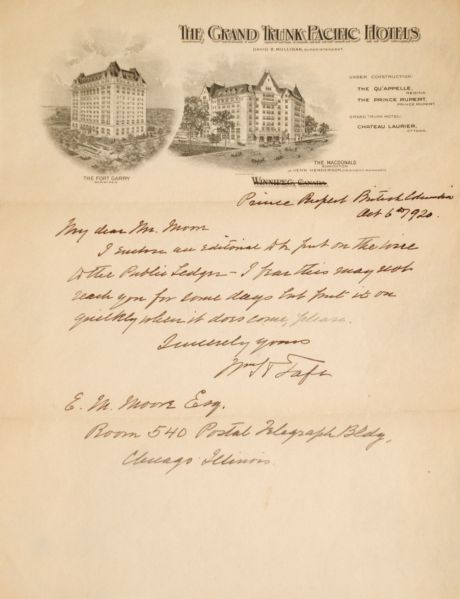 THE GRAND TRUNK PACIFIC HOTELS
DAVID B. MULLIGAN, SUPERINTENDENT
UNDER CONSTRUCTION:
THE QU'APPELLE,
REGINA
THE PRINCE RUPERT,
PRINCE RUPERT
GRAND TRUNK HOTEL:
CHATEAU LAURIER,
OTTAWA
THE FORT GARRY
WINNIPEG
THE MACDONALD
EDMONTON
WINNIPEG, CANADA
Prince Rupert British Columbia
Oct 6th 1920.
My dear Mr. Moore
I enclose an editorial to be put on the wire
to the Public Ledger - I fear this may not
reach you for some days but put it on
quickly when it does come, please.
Sincerely yours
Wm H Taft
E. M. Moore Esq.
Room 540 Postal Telegraph Bldg,
Chicago Illinois